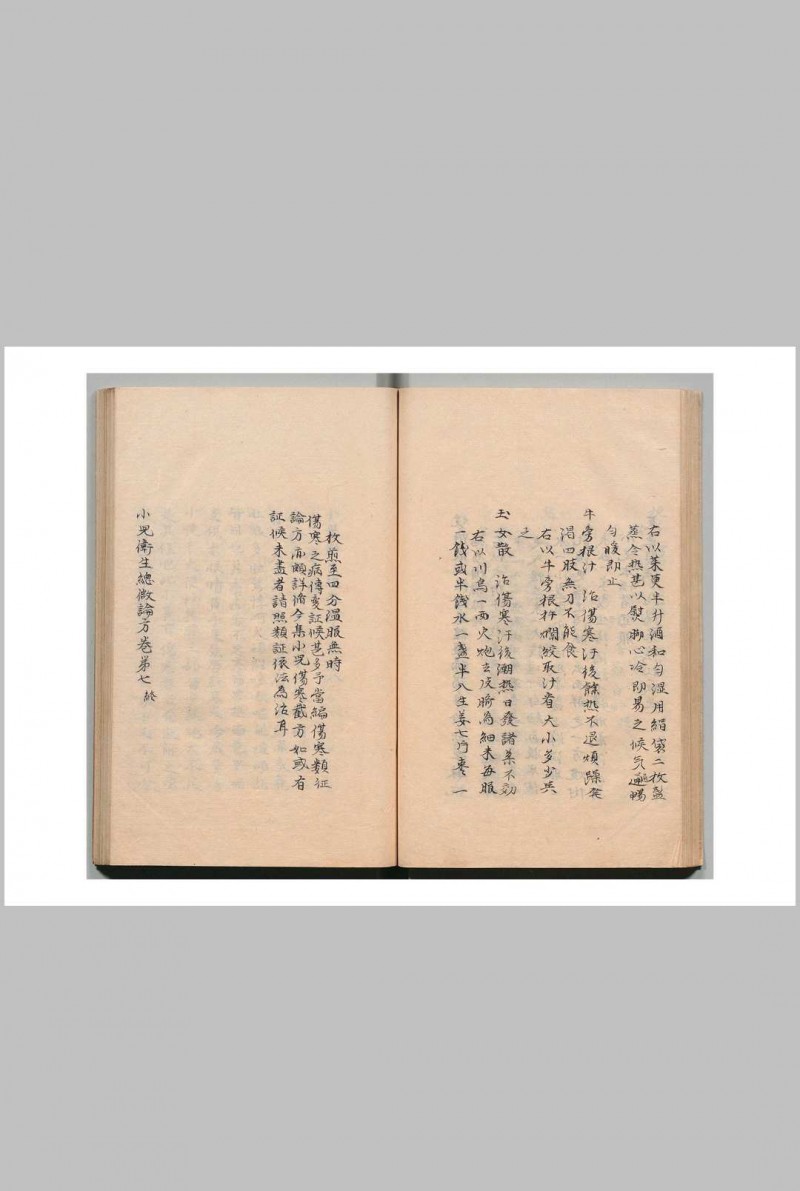 右以茱萸半升酒和匀湿用絹袋二枚盛
蒸令热甚以熨脚心冷即易之候气通暢
匀暖即止
牛旁根汁　治傷寒汗後餘热不退煩躁発
渴四肢無力不能食
右以牛旁根杵爛絞取汁看大小多少与
之
玉女散　治傷寒汗後潮热日發諸薬不効
右以川烏一两火炮去皮臍為細末每服
一錢或半錢水一盞半入生姜七片枣一
枚煎至四分温服無時
傷寒之病傳变証候甚多予當編傷寒類証
論方而頗詳俻今集小児傷寒截方如或有
証候未盡者請照類証依法為治耳
小児衛生總微論方卷第七　終